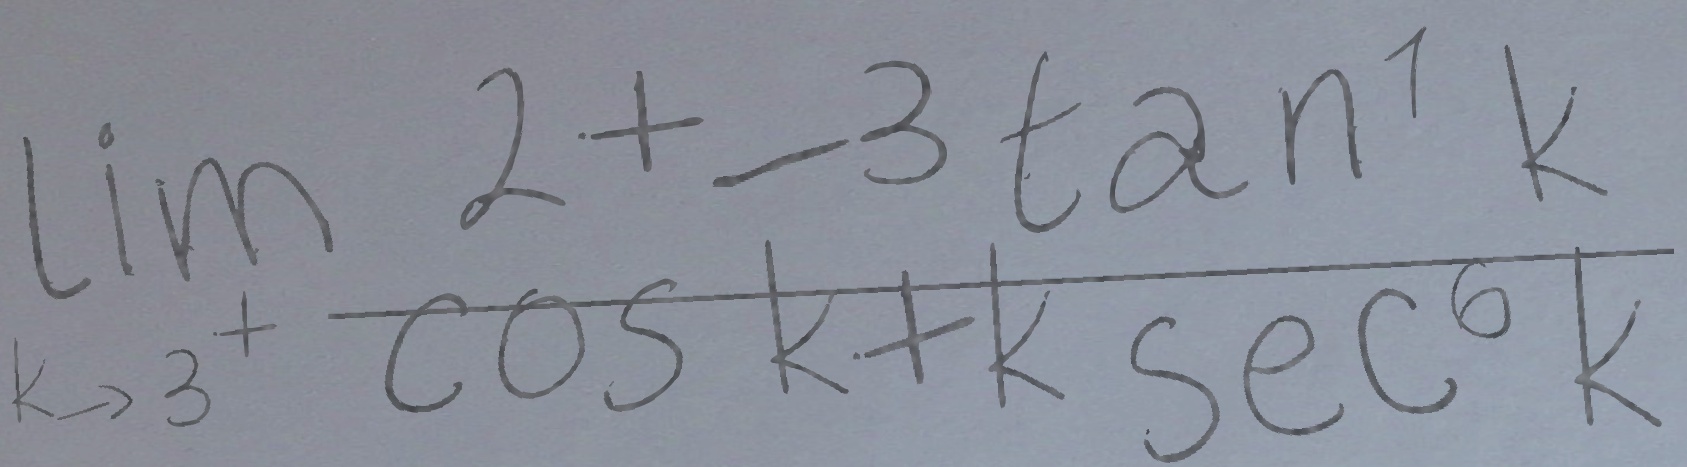 \lim_{k \to 3^+} \frac{2 + -3 \tan^1 k}{\cos k + k \sec^6 k}